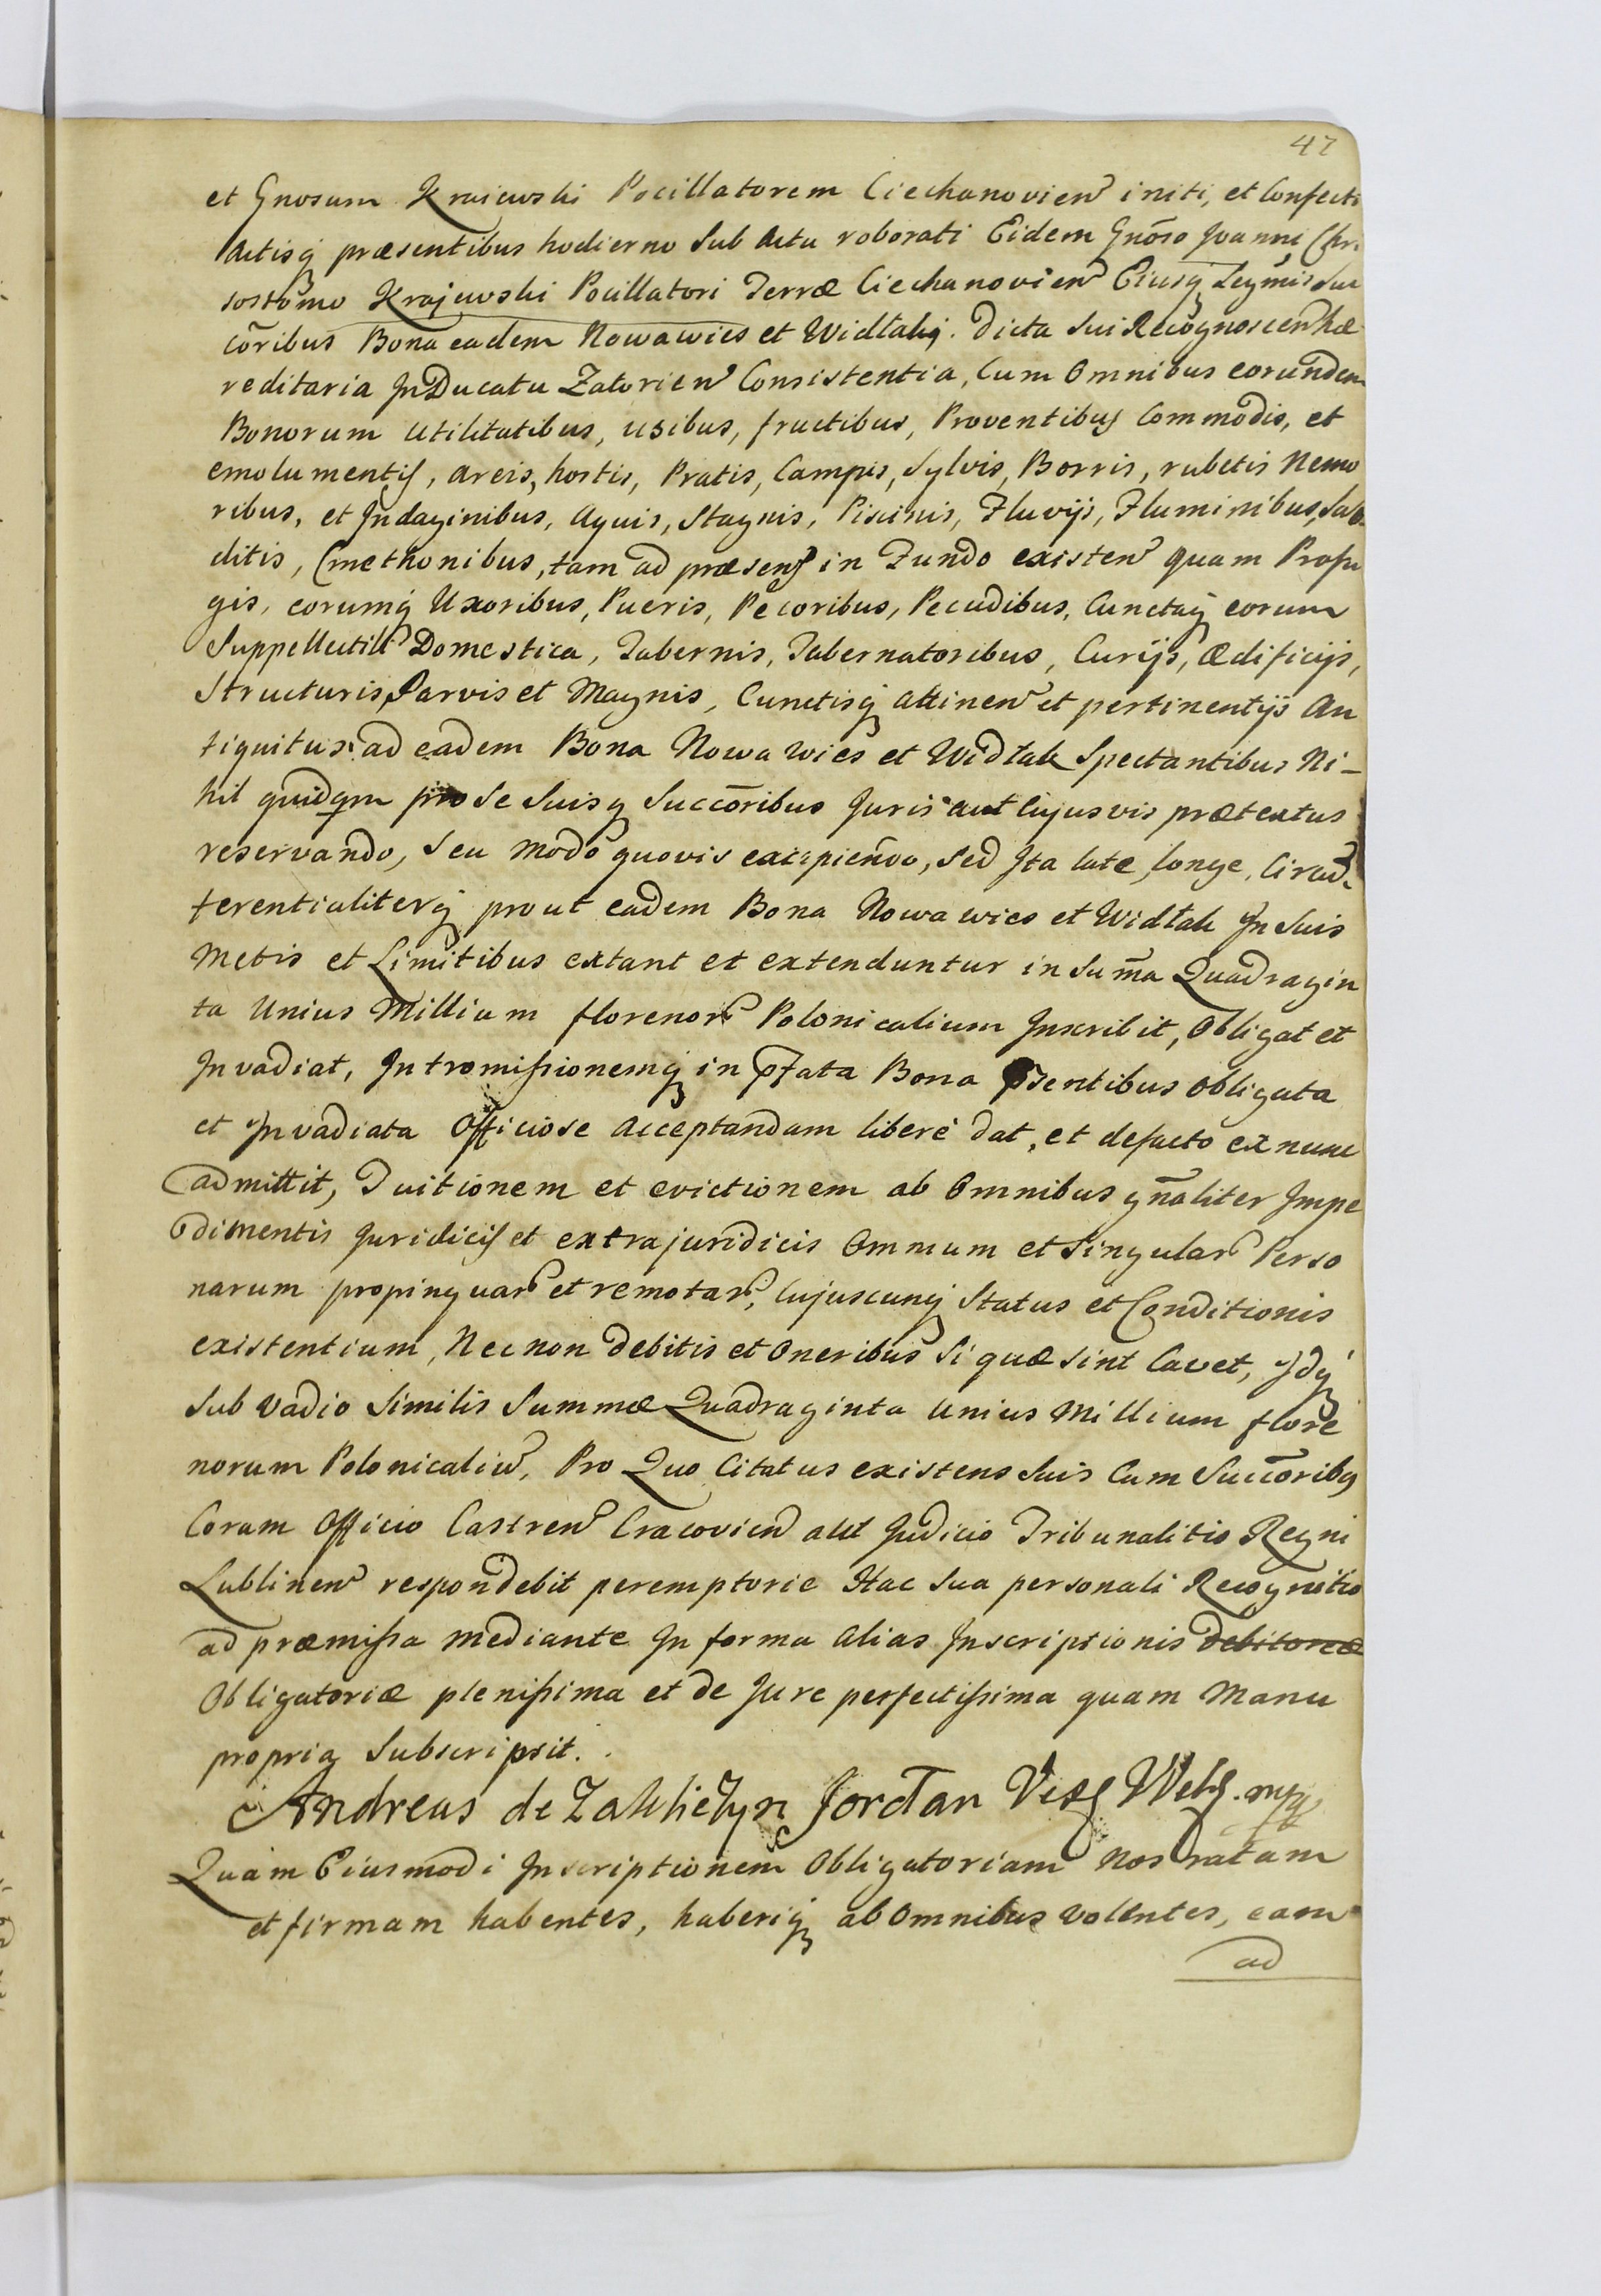 47
et Gnosum Krajewski Pocillatorem Ciechanovien initi, et Confecti
Actisq praesentibus hodierno Sub Actu roborati Eidem Gnõso Joanni Chri
sostomo Krajewski Pocillatori Terræ Ciechanovien Eiusq Legmis Suc
cõribus Bona eadem Nowawies et Widlak. Dicta Sui Recognoscen hæ
reditaria In Ducatu Zatorien Consistentia, Cum Omnibus eorundem
Bonorum utilitatibus, usibus, fructibus, Proventibus Commodis, et
emolumentis, areis, hortis, Pratis, Campis, Sylvis, Borris, rubetis Nemo
ribus, et Indaginibus, Aquis, Stagnis, Piscinis, Fluvijs, Fluminibus, Sub
ditis, Cmethonibus, tam ad præsens in Fundo existen quam Profu
gis, eorumq Uxoribus, Pueris, Pecoribus, Pecudibus, Cunctaq eorum
Suppellectili Domestica, Tabernis, Tabernatoribus, Curijs, Ædificijs,
Structuris, Parvis et Magnis, Cunctisq attinen et pertinentijs An
tiquitus ad eadem Bona Nowa Wies et Widlak Spectantibus Ni-
hil quidqm pro Se Suisq Succõribus Juris aut Cujusvis prætextus
reservando, Seu Modo quovis excipiendo, Sed Ita late, longe, Circum
ferentialiterq prout eadem Bona Nowa wies et Widlak In Suis
Metis et Limitibus extant et extenduntur in Suma Quadragin
ta Unius Millium florenor Polonicalium Inscribit, Obligat et
Invadiat, Intromissionemq in pfata Bona psentibus obligata
et Invadiata Officiose Acceptandam libere dat, et defacto ex nunc
admittit, Tuitionem et evictionem ab Omnibus gnãliter Impe
dimentis Juridicis et extrajuridicis Omnium et Singular Perso
narum propinquar et remotar, Cujuscunq Status et Conditionis
existentium, Nec non Debitis et Oneribus Si quæ sint Cavet, Idq
Sub Vadio Similis Summæ Quadraginta Unius Millium flore
norum Polonicaliu, Pro Quo Citatus existens Suis Cum Succõribus
Coram Officio Castren Cracovien aut Judicio Tribunalitio Regni
Lublinen respondebit peremptorie Hac Sua personali Recognitio
ad præmissa Mediante In forma Alias Inscriptionis debitoreæ
Obligatoriæ plenissima et de Jure perfectissima quam Manu
propria Subscripsit.
Andreas de Zakliczyn Jordan mp
Quam Eiusmodi Inscriptionem Obligatoriam Nos ratam
et firmam habentes, haberiq ab Omnibus Volentes, eam
ad